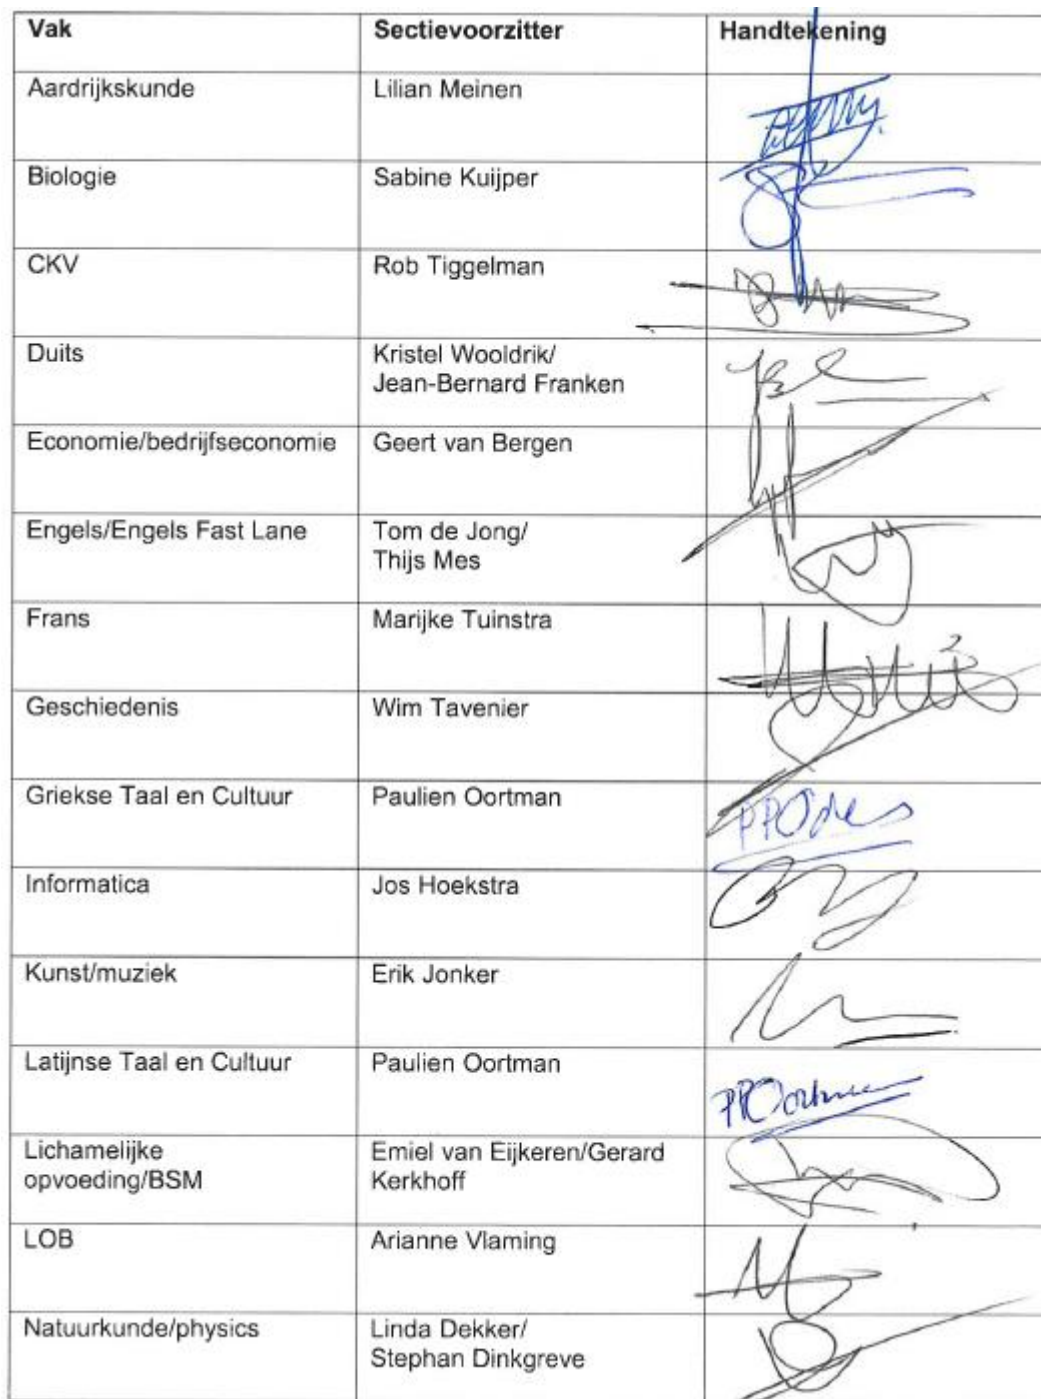 Vak Sectievoorzitter Handtekening
Aardrijkskunde Lilian Meinen
Biologie Sabine Kuijper
CKV Rob Tiggelman
Duits Kristel Wooldrik/
Jean-Bernard Franken
Economie/bedrijfseconomie Geert van Bergen
Engels/Engels Fast Lane Tom de Jong/
Thijs Mes
Frans Marijke Tuinstra
Geschiedenis Wim Tavenier
Griekse Taal en Cultuur Paulien Oortman
Informatica Jos Hoekstra
Kunst/muziek Erik Jonker
Latijnse Taal en Cultuur Paulien Oortman
PPOortman
Lichamelijke Emiel van Eijkeren/Gerard
opvoeding/BSM Kerkhoff
LOB Arianne Vlaming
Natuurkunde/physics Linda Dekker/
Stephan Dinkgreve